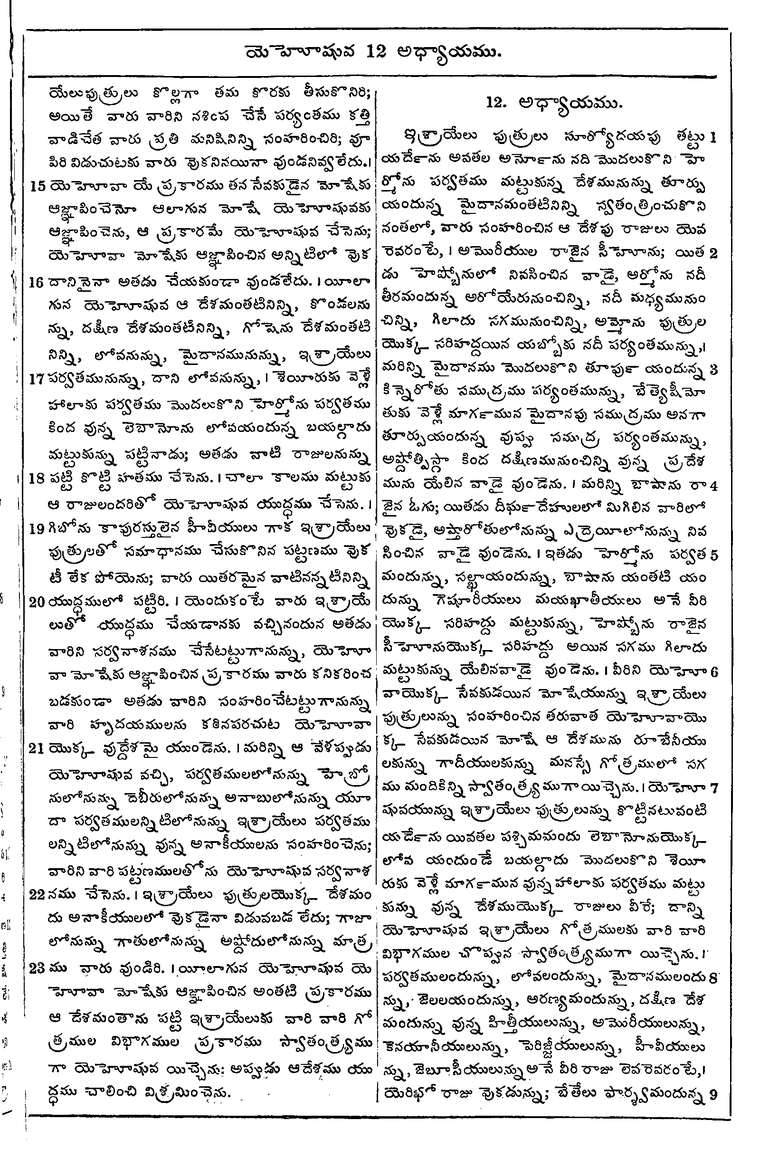 యెహోషువ 12 అధ్యాయము.
యేలుపుత్రులు కొల్లగా తమ కొరకు తీసుకొనిరి;
అయితే వారు వారిని నశింప చేసే పర్యంతము కత్తి
వాడిచేత వారు ప్రతి మనిషినిన్ని సంహరించిరి; వూ
పిరి విడుచుటకు వారు వొకనినయినా వుండనివ్వలేదు.।
15 యెహోవా యే ప్రకారము తన సేవకుడైన మోషేకు
ఆజ్ఞాపించెనో ఆలాగున మోషే యెహోషువకు
ఆజ్ఞాపించెను, ఆ ప్రకారమే యెహోషువ చేసెను;
యెహోవా మోషేకు ఆజ్ఞాపించిన అన్నిటిలో వొక
16 దానినైనా అతడు చేయకుండా వుండలేదు. । యీలా
గున యెహోషువ ఆ దేశమంతటినిన్ని, కొండలను
న్ను, దక్షిణ దేశమంతటినిన్ని, గోషెను దేశమంతటి
నిన్ని, లోవనున్ను, మైదానమునున్ను, ఇశ్రాయేలు
17 పర్వతమునున్ను, దాని లోవనున్ను, । శెయీరుకు వెళ్లే
హాలాకు పర్వతము మొదలుకొని హెర్మోను పర్వతము
కింద వున్న లెబానోను లోవయందున్న బయల్గాదు
మట్టుకున్ను పట్టినాడు; అతడు వాటి రాజులనున్ను
18 పట్టి కొట్టి హతము చేసెను. । చాలా కాలము మట్టుకు
ఆ రాజులందరితో యెహోషువ యుద్ధము చేసెను. ।
19 గిబోను కాపురస్తులైన హీవీయులు గాక ఇశ్రాయేలు
పుత్రులతో సమాధానము చేసుకొనిన పట్టణము వొక
టీ లేక పోయెను; వారు యితరమైన వాటినన్నటినిన్ని
20 యుద్ధములో పట్టిరి. । యెందుకంటే వారు ఇశ్రాయే
లుతో యుద్ధము చేయడానకు వచ్చినందున అతడు
వారిని సర్వనాశనము చేసేటట్టుగానున్ను, యెహో
వా మోషేకు ఆజ్ఞాపించిన ప్రకారము వారు కనికరించ
బడకుండా అతడు వారిని సంహరించేటట్టుగానున్ను
వారి హృదయములను కఠినపరచుట యెహోవా
21 యొక్క వుద్దేశమై యుండెను. । మరిన్ని ఆ వేళప్పుడు
యెహోషువ వచ్చి, పర్వతములలోనున్ను హెబ్రో
నులోనున్ను దెబీరులోనున్ను అనాబులోనున్ను యూ
దా పర్వతములన్నిటిలోనున్ను ఇశ్రాయేలు పర్వతము
లన్నిటిలోనున్ను వున్న అనాకీయులను సంహరించెను;
వారిని వారి పట్టణములతోను యెహోషువ సర్వనాశ
22 నము చేసెను. । ఇశ్రాయేలు పుత్రులయొక్క దేశమం
దు అనాకీయులలో వొకడైనా విడువబడ లేదు; గాజా
లోనున్ను గాతులోనున్ను అష్దోదులోనున్ను మాత్ర
23 ము వారు వుండిరి. । యీలాగున యెహోషువ యె
హోవా మోషేకు ఆజ్ఞాపించిన అంతటి ప్రకారము
ఆ దేశమంతాను పట్టి ఇశ్రాయేలుకు వారి వారి గో
త్రముల విభాగముల ప్రకారము స్వాతంత్ర్యము
గా యెహోషువ యిచ్చెను: అప్పుడు ఆదేశము యు
ద్ధము చాలించి విశ్రమించెను.
12. అధ్యాయము.
ఇశ్రాయేలు పుత్రులు సూర్యోదయపు తట్టు 1
యర్దేను అవతల అర్నోను నది మొదలుకొని హె
ర్మోను పర్వతము మట్టుకున్న దేశమునున్ను తూర్పు
యందున్న మైదానమంతటినిన్ని స్వతంత్రించుకొని
నంతలో, వారు సంహరించిన ఆ దేశపు రాజులు యెవ
రెవరంటే, । అమొరీయుల రాజైన సీహోను; యిత 2
డు హెష్బోనులో నివసించిన వాడై, అర్నోను నదీ
తీరమందున్న అరోయేరునుంచిన్ని, నదీ మధ్యమునుం
చిన్ని, గిలాదు సగమునుంచిన్ని, అమ్మోను పుత్రుల
యొక్క సరిహద్దయిన యబ్బోకు నదీ పర్యంతమున్ను,।
మరిన్ని మైదానము మొదలుకొని తూర్పు యందున్న 3
కిన్నెరోతు సముద్రము పర్యంతమున్ను, బేత్యెషీమో
తుకు వెళ్లే మార్గమున మైదానపు సముద్రము అనగా
తూర్పుయందున్న వుప్పు సముద్ర పర్యంతమున్ను,
అష్దోత్పిస్గా కింద దక్షిణమునుంచిన్ని వున్న ప్రదేశ
మును యేలిన వాడై వుండెను. । మరిన్ని బాషాను రా 4
జైన ఓగు; యితడు దీర్ఘదేహులలో మిగిలిన వారిలో
వొకడై, అష్తారోతులోనున్ను ఎద్రెయీలోనున్ను నివ
సించిన వాడై వుండెను. । ఇతడు హెర్మోను పర్వత 5
మందున్ను, సల్ఖాయందున్ను, బాషాను యంతటి యం
దున్ను గెషూరీయులు మయఖాతీయులు అనే వీరి
యొక్క సరిహద్దు మట్టుకున్ను, హెష్బోను రాజైన
సీహోనుయొక్క సరిహద్దు అయిన సగము గిలాదు
మట్టుకున్ను యేలినవాడై వుండెను. । వీరిని యెహో 6
వాయొక్క సేవకుడయిన మోషేయున్ను ఇశ్రాయేలు
పుత్రులున్ను సంహరించిన తరువాత యెహోవాయొ
క్క సేవకుడయిన మోషే ఆ దేశమును రూబేనీయు
లకున్ను గాదీయులకున్ను మనస్సే గోత్రములో సగ
ము మందికిన్ని స్వాతంత్ర్యముగా యిచ్చెను. । యెహో 7
షువయున్ను ఇశ్రాయేలు పుత్రులున్ను కొట్టినటువంటి
యర్దేను యివతల పశ్చిమమందు లెబానోనుయొక్క
లోవ యందుండే బయల్గాదు మొదలుకొని శెయీ
రుకు వెళ్లే మార్గమున వున్న హాలాకు పర్వతము మట్టు
కున్ను వున్న దేశముయొక్క రాజులు వీరే; దాన్ని
యెహోషువ ఇశ్రాయేలు గోత్రములకు వారి వారి
విభాగముల చొప్పున స్వాతంత్ర్యముగా యిచ్చెను. ।
పర్వతములందున్ను, లోవలందున్ను, మైదానములందు 8
న్ను, జెలలయందున్ను, అరణ్యమందున్ను, దక్షిణ దేశ
మందున్ను వున్న హిత్తీయులున్ను, అమొరీయులున్ను,
కెనయానీయులున్ను, పెరిజ్జీయులున్ను, హీవీయులు
న్ను, జెబూసీయులున్ను అనే వీరి రాజు లెవరెవరంటే, ।
యెరిఖో రాజు వొకడున్ను; బేతేలు పార్శ్వమందున్న 9